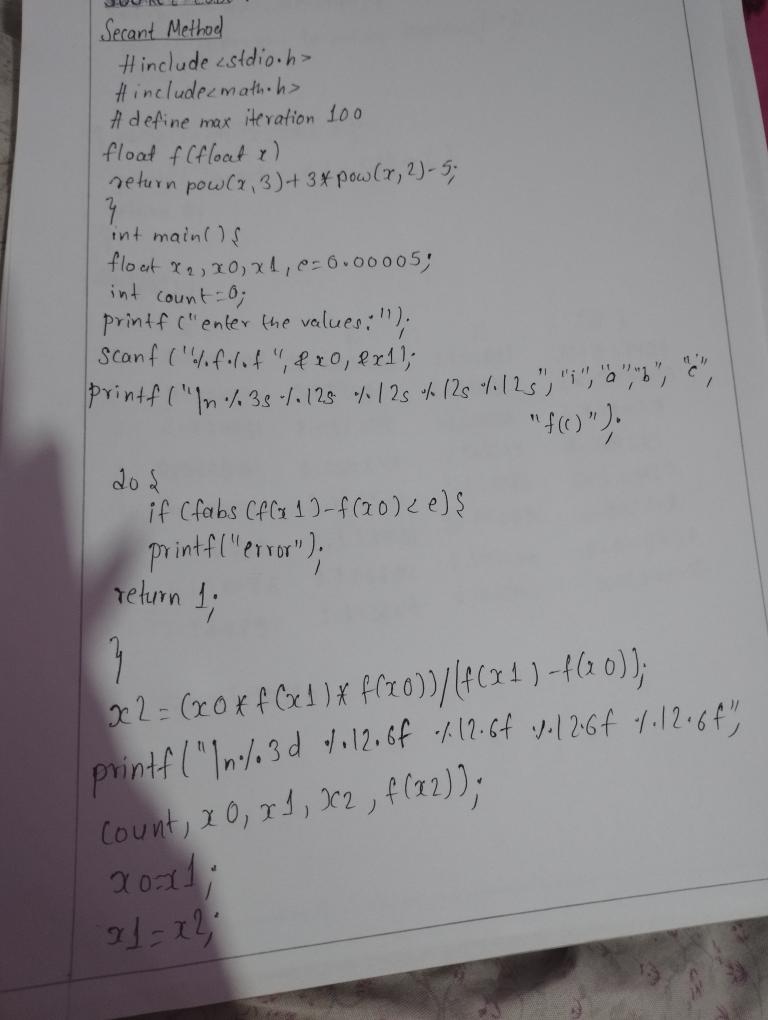 Secant Method
#include <stdio.h>
#include<math.h>
# define max iteration 100
float f(float x)
return pow(x,3)+3*pow(x,2)-5;
}
int main(){
float x2, x0, x1, e=0.00005;
int count=0;
printf ("enter the values:");
scanf ("%f%f", &x0, &x1);
printf("\n %3s %12s %12s %12s %12s", "i", "a", "b", "c",
"f(c)");
do {
if (fabs(f(x1)-f(x0)<e){
printf("error");
return 1;
}
x2=(x0*f(x1)*f(x0))/(f(x1)-f(x0));
printf("\n%3d %12.6f %12.6f %12.6f %12.6f",
count, x0, x1, x2, f(x2));
x0=x1;
x1=x2;